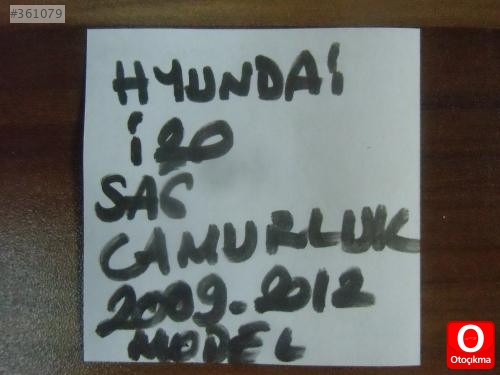 #361079
HYUNDAİ
i20
SAĞ
ÇAMURLUK
2009-2012
MODEL
O
Otoçıkma